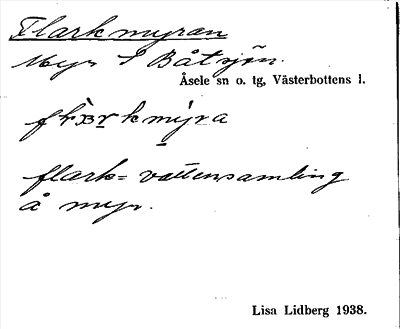 Flarkmyran
Myr S Båtsjön.
Åsele sn o. tg, Västerbottens l.
flark= vattensamling
å myr.
Lisa Lidberg 1938.